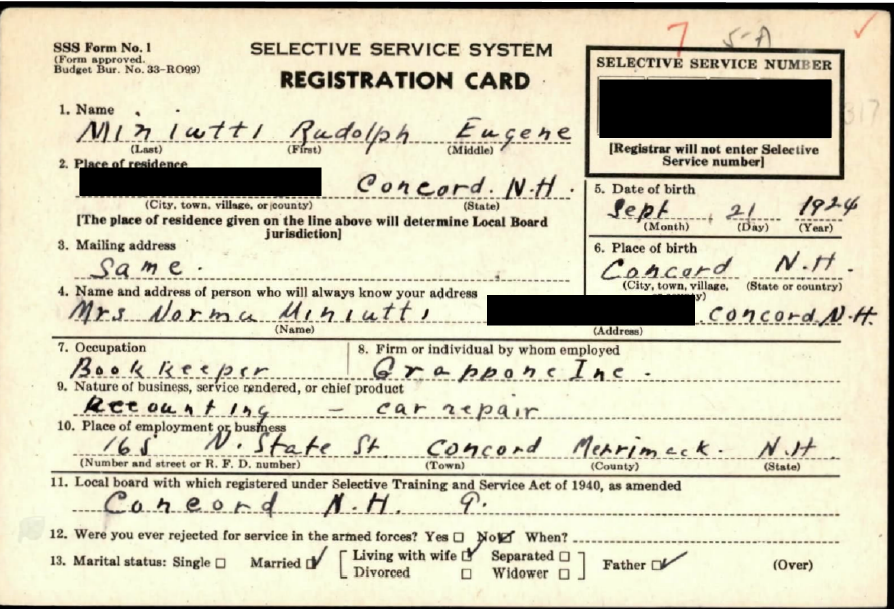 7 5-A ✓
SSS Form No. 1
(Form approved.
Budget Bur. No. 33-RO99)
SELECTIVE SERVICE SYSTEM
REGISTRATION CARD
SELECTIVE SERVICE NUMBER
317
[Registrar will not enter Selective
Service number]
1. Name
Miniutti Rudolph Eugene
(Last) (First) (Middle)
2. Place of residence
Concord. N.H.
(City, town, village, or county) (State)
[The place of residence given on the line above will determine Local Board
jurisdiction]
5. Date of birth
Sept 21 1924
(Month) (Day) (Year)
3. Mailing address
Same.
6. Place of birth
Concord N.H.
(City, town, village, (State or country)
4. Name and address of person who will always know your address
Mrs Norma Miniutti Concord N.H.
(Name) (Address)
7. Occupation
Bookkeeper
8. Firm or individual by whom employed
Grappone Inc.
9. Nature of business, service rendered, or chief product
Accounting - car repair
10. Place of employment or business
165 N. State St Concord Merrimack. N.H
(Number and street or R. F. D. number) (Town) (County) (State)
11. Local board with which registered under Selective Training and Service Act of 1940, as amended
Concord N.H. 9.
12. Were you ever rejected for service in the armed forces? Yes ☐ No ☑ When?
13. Marital status: Single ☐ Married ☑ [Living with wife ☑ Separated ☐
Divorced ☐ Widower ☐] Father ☑ (Over)